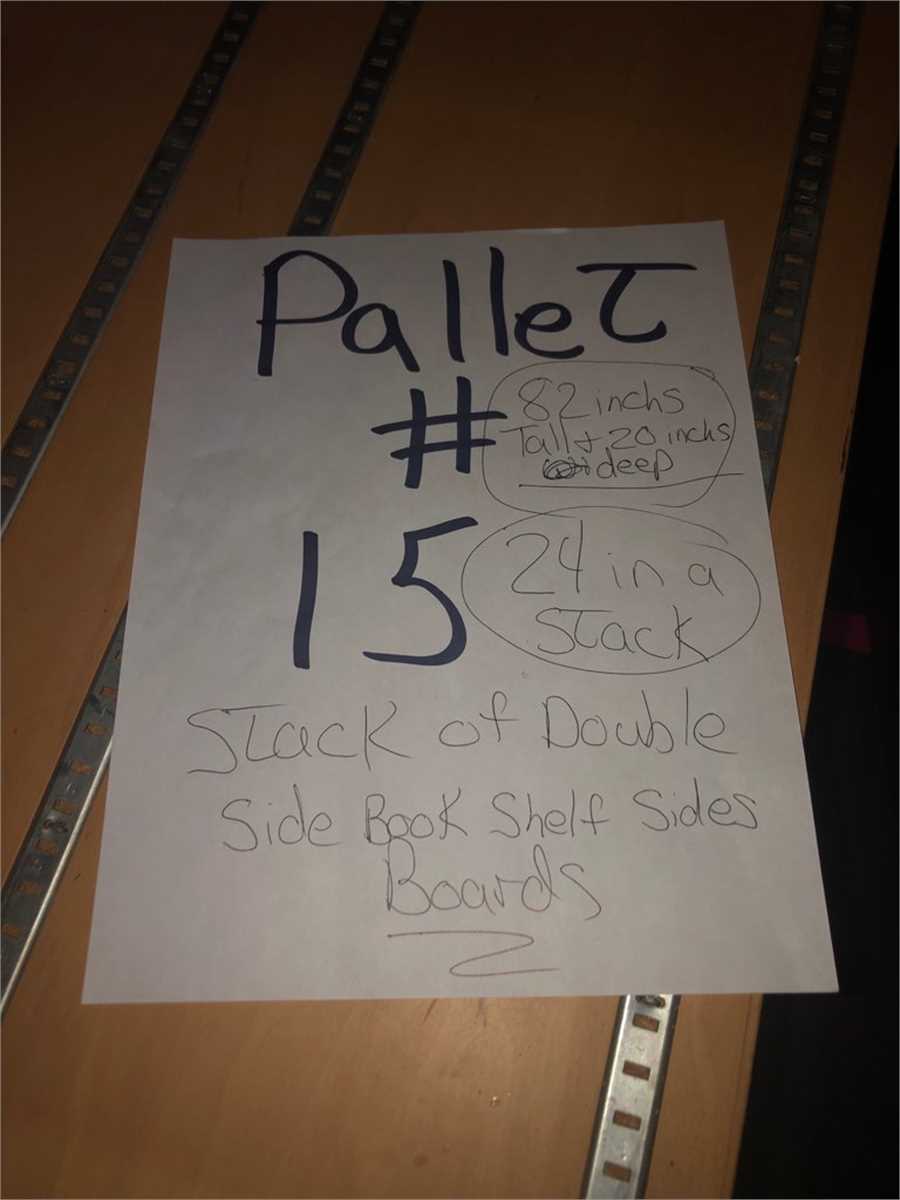 PalleT
#
82 inchs
Tall + 20 inchs
deep
15
24 in a
STack
STack of Double
Side Book Shelf Sides
Boards